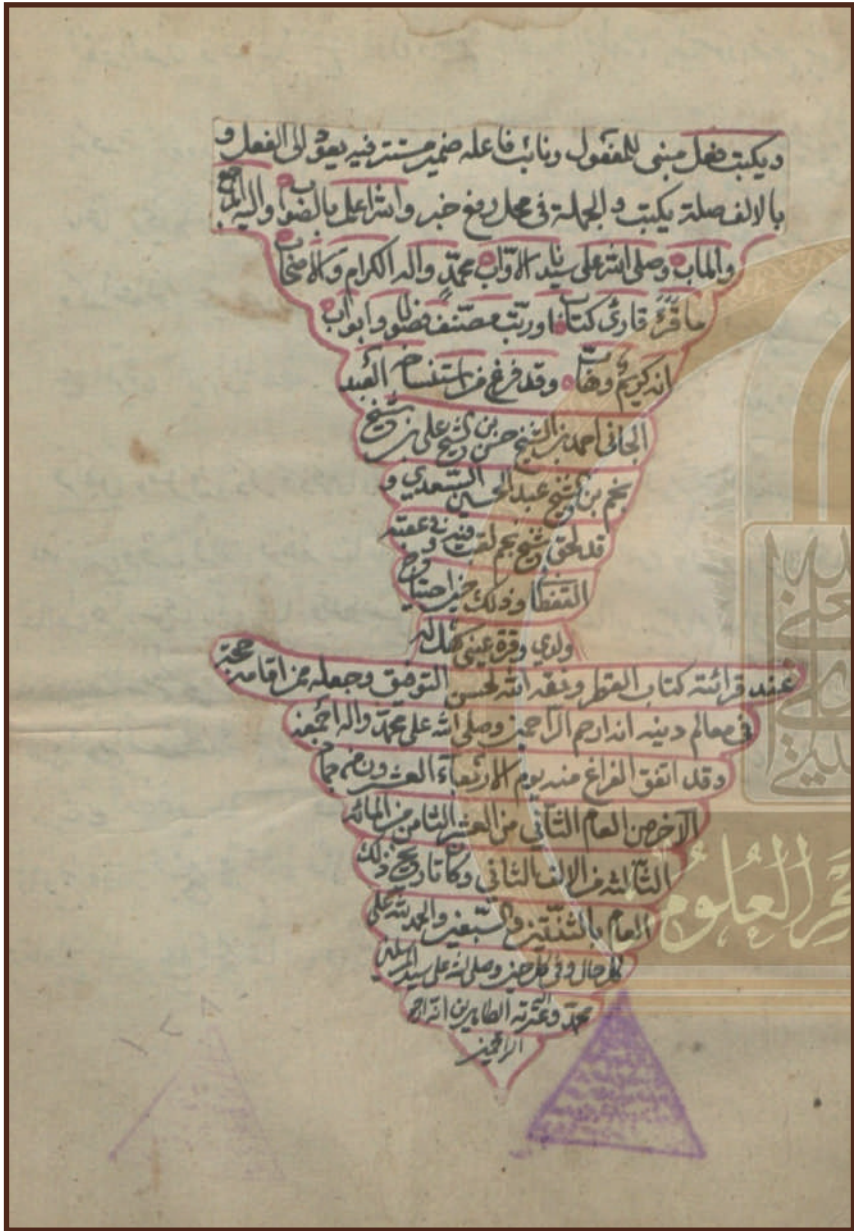 ويكتب فعل مبنى للمفعول ونائب فاعله ضمير مستتر فيه يعود الى الفعل و
بالالف صلة يكتب والجملة فى محل رفع خبر والله اعلم بالصواب واليه المرجع
والماب وصلى الله على سيدنا الاواب محمد واله الكرام والاصحاب
ما قرء قارئ كتابا ورتب مصنف فصولا وابواب
انه كريم وهاب وقد فرغ من استنساخه العبد
الجانى احمد بن الشيخ حسن بن الشيخ على بن الشيخ
نجم بن الشيخ عبد الحسين السعدي و
قد لحق شيخ نجم لقب فيه
وذلك حين احتياج
ولدي وقرة عيني
عند قرائته كتاب القطر وفقه الله لحسن التوفيق وجعله ممن اقامه حجة
فى معالم دينه انه ارحم الراحمين وصلى الله على محمد واله اجمعين
وقد اتفق الفراغ منه يوم الاربعاء العشرون من جماد
الآخر من العام الثاني من العشر الثامن من المائة
الثالثة من الالف الثاني وكان تاريخ ذلك
العام بالثنتين والسبعين والحمد لله على
كل حال وفى كل حين وصلى الله على سيد المرسلين
محمد وعترته الطاهرين انه ارحم
الراحمين
بحر العلوم